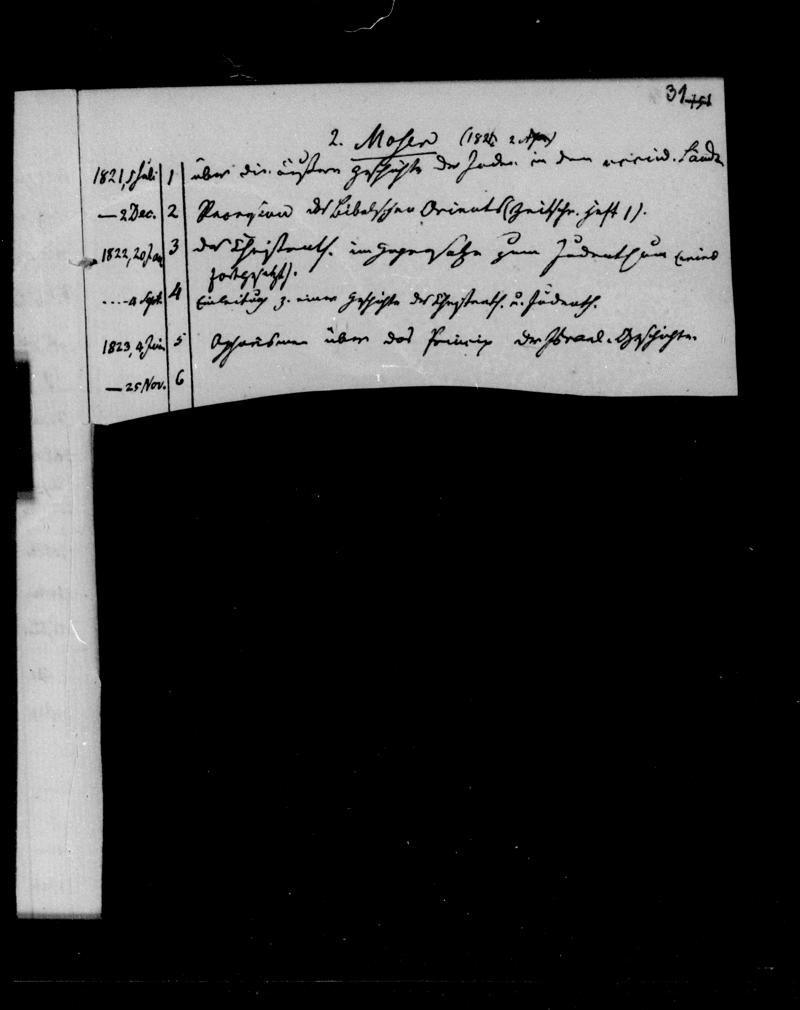 31
2. Moser (1821 2 Apr)
1821, 5 Juli 1 über die äußere Geschichte der Juden in den Lände
— 2 Dec. 2 Recension des Biblischen Orients (Zeitschr. Heft 1).
1822, 20 Jan 3 das Christenth. im Gegensatze zum Judenthum (wird
fortgesetzt).
4 Sept. 4 Einleitung z. einer Geschichte des Christenth. u. Judenth.
1823, 4 Juni 5 Aphorismen über das Princip der Israel. Geschichte.
— 25 Nov. 6